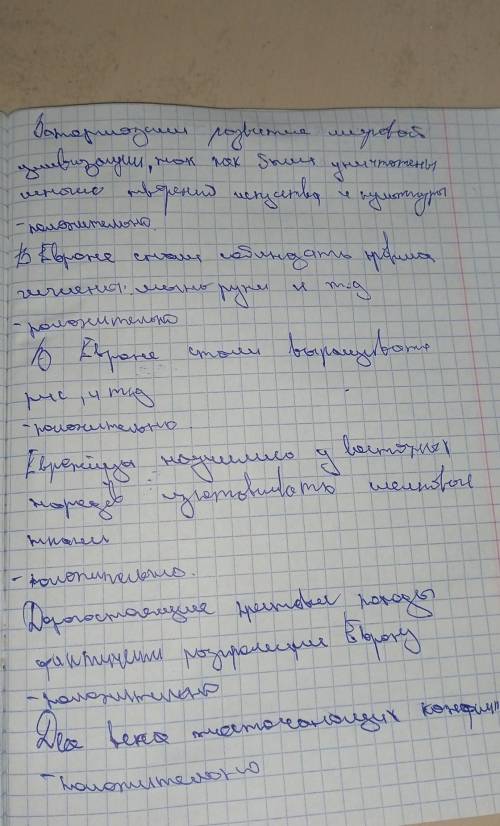 Затормозили развитие мировой
цивилизации, так как были уничтожены
многие творения искуства и культуры
- положительно.
В Европе стали соблюдать правила
гигиены: мыть руки и т.д
- положительно
В Европе стали выращивать
рис, и т.д
- положительно.
Европейцы научились у восточных
народов изготовливать шелковые
ткани
- положительно.
Дорогостоящие крестовые походы
фактически разграбили Европу
- положительно
Два века
- положительно